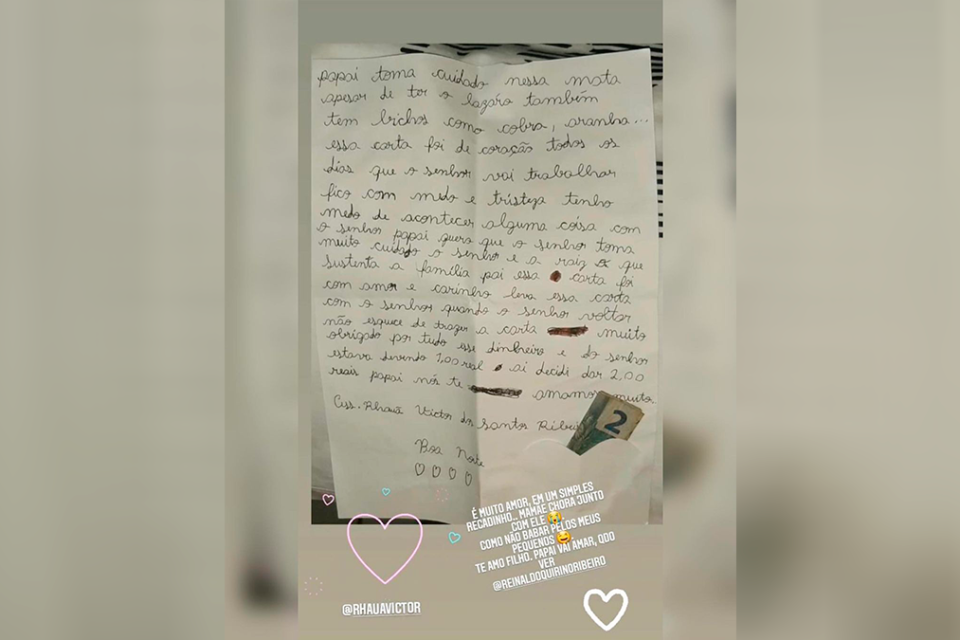 papai toma cuidado nessa mata
apesar de ter o lazáro também
tem bichos como cobra, aranha...
essa carta foi de coração todos os
dias que o senhor vai trabalhar
fico com medo e tristeza tenho
medo de acontecer alguma coisa com
o senhor papai quero que o senhor toma
muito cuidado o senhor e a raiz que
sustenta a família pai essa carta foi
com amor e carinho leva essa carta
com o senhor quando o senhor voltar
não esquece de trazer a carta muito
obrigado por tudo esse dinheiro e do senhor
estava devendo 1,00 real ai decidi dar 2,00
reais papai nós te amamos muito
Ass. Rhauã Victor dos santos Ribei
Boa Noite
2
É MUITO AMOR, EM UM SIMPLES
RECADINHO.. MAMÃE CHORA JUNTO
COM ELE 😭
COMO NÃO BABAR PELOS MEUS
PEQUENOS 😍
TE AMO FILHO. PAPAI VAI AMAR, QDO
VER
@REINALDOQUIRINORIBEIRO
@RHAUAVICTOR